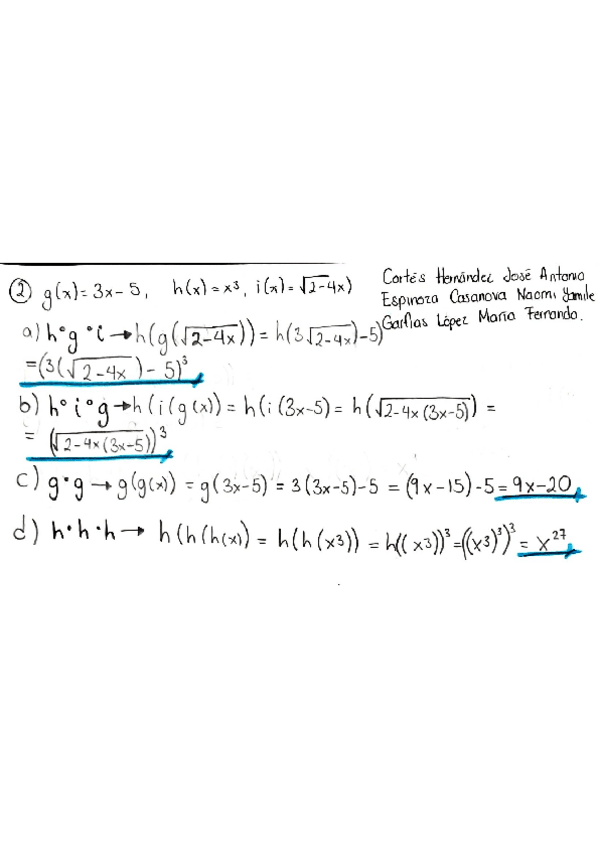 ② g(x)= 3x-5, h(x)=x³, i(x)=√2-4x)
Cortés Hernández José Antonio
Espinoza Casanova Naomi Yamile
Garfias López María Fernando.
a) h°g°i→h(g(√2-4x))= h(3√2-4x)-5)
=(3(√2-4x)-5)³
b) h°i°g→h(i(g(x))= h(i(3x-5)= h(√2-4x(3x-5)) =
= (√2-4x(3x-5))³
c) g•g→g(g(x)) = g(3x-5) = 3(3x-5)-5 = (9x-15)-5= 9x-20
d) h•h•h→ h(h(h(x) = h(h(x3)) = h((x3))³=((x3)³)³= x²⁷